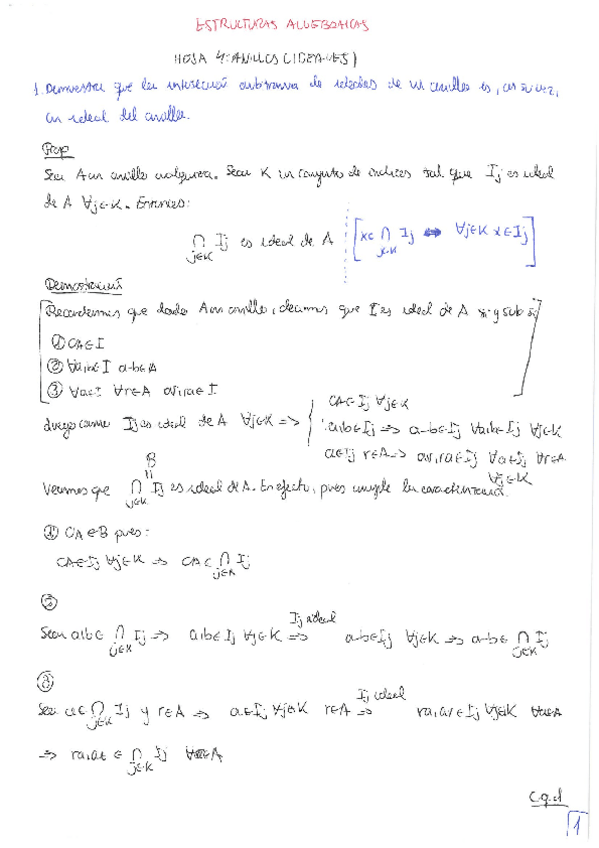 ESTRUCTURAS ALGEBRAICAS
HOJA 4: ANILLOS (IDEALES)
1. Demostrar que la intersección arbitraria de ideales de un anillo es, a su vez,
un ideal del anillo.
Prop
Sea A un anillo cualquiera. Sea K un conjunto de índices tal que Ij es ideal
de A ∀j∈K. Entonces:
⋂ Ij es ideal de A [x∈ ⋂ Ij ⇔ ∀j∈K x∈Ij]
j∈K j∈K
Demostración
Recordemos que dado A un anillo, decimos que I es ideal de A si y sólo si
① 0A∈I
② ∀a,b∈I a-b∈A
③ ∀a∈I ∀r∈A ar,ra∈I.
Luego como Ij es ideal de A ∀j∈K => { 0A∈Ij ∀j∈K
a,b∈Ij => a-b∈Ij ∀a,b∈Ij ∀j∈K
a∈Ij r∈A => ar,ra∈Ij ∀a∈Ij ∀r∈A
∀j∈K
B
Veamos que ⋂ Ij es ideal de A. En efecto, pues cumple la caracterización.
j∈K
① 0A∈B pues:
0A∈Ij ∀j∈K => 0A∈ ⋂ Ij
②
Sean a,b∈ ⋂ Ij => a,b∈Ij ∀j∈K => Ij ideal a-b∈Ij ∀j∈K => a-b∈ ⋂ Ij
j∈K j∈K
③
Sea a∈ ⋂ Ij y r∈A => a∈Ij ∀j∈K r∈A => Ij ideal ra,ar∈Ij ∀j∈K
j∈K
=> ra,ar ∈ ⋂ Ij ∀r∈A
j∈K
c.q.d
1